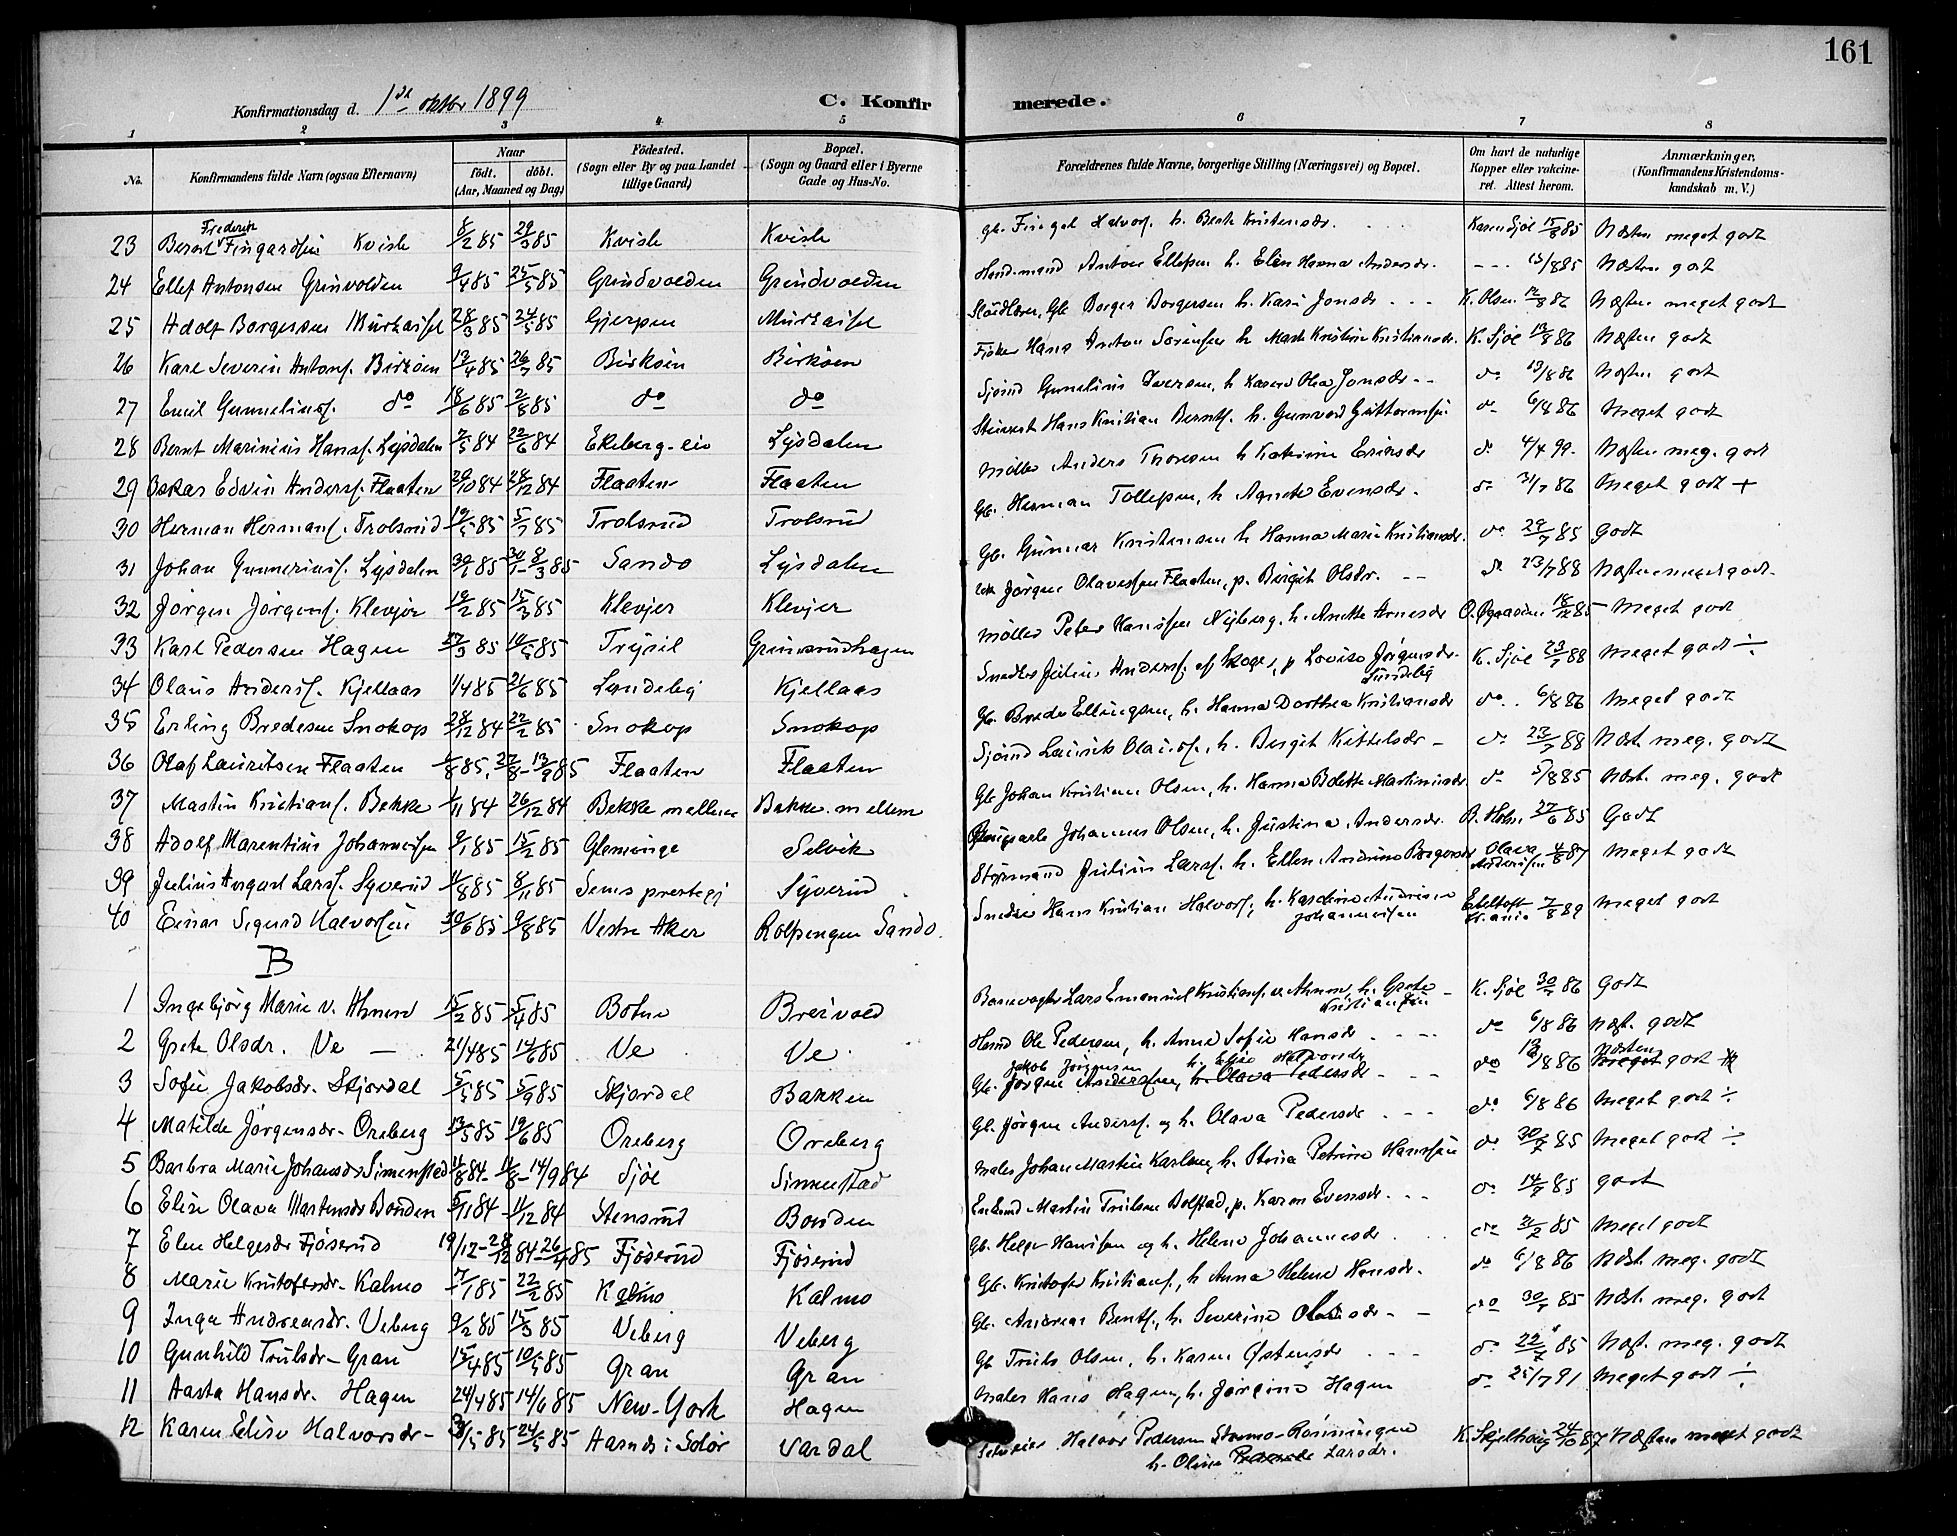 161
Konfirmationsdag d. 1ste oktbr 1899 C. Konfirmerede.
1 2 3 4 5 6 7 8
No. Konfirmandens fulde Navn (ogsaa Efternavn) Naar født. døbt. (Aar, Maaned og Dag) Fødested. (Sogn eller By og paa Landet tillige Gaard) Bopæl. (Sogn og Gaard eller i Byerne Gade og Hus-No. Forældrenes fulde Navne, borgerlige Stilling (Næringsvei) og Bopæl. Om havt de naturlige Kopper eller vakcineret. Attest herom. Anmærkninger. (Konfirmandens Kristendomskundskab m. V.)
23 Bernt Frederik Fingardsen Kvisle 6/2 85 29/3 85 Kvisle Kvisle Gb. Halvors. h. Berte Kristensdr. Karen Sjøl 15/8 85 Næsten meget godt
24 Ellef Antonsen Grinvolden 9/4 85 25/5 85 Grindvolden Grindvolden Husmand Anton Ellefsen h. Elen Hanna Andersdr. --- 13/8 85 Næsten godt
25 Adolf Borgersen Murtaisel 28/3 85 24/5 85 Gjerpen Murtaisel Gb. Borger Borgersen h. Kari Jonsdr --- K. Olsen 12/8 86 Næsten meget godt
26 Karl Severin Antons. Birkøen 13/4 85 26/7 85 Birkøen Birkøen Fisker Hans Anton Sørensen h. Marte Kristine Kristiansdr. K. Sjøl 13/8 86 Næsten godt
27 Emil Gunnelius. do 18/6 85 2/8 85 do do Sjømd Gunnelius Iversen, h. Karen Olea Jonsdr -- do 13/8 86 Næsten godt
28 Bernt Marinius Hans. Lysdalen 7/5 84 22/6 84 Ekeberg-eie Lysdalen Hans Kristian Bernts. h. Gunvor Guttormsen do 6/8 86 Meget godt
29 Oskar Edvin Anders. Flaaten 29/10 84 28/12 84 Flaaten Flaaten Møller Anders Thoresen h. Katrine Eriksdr do 4/4 99. Næsten meg. godt
30 Herman Hermans. Trolsrud 19/5 85 5/7 85 Trolsrud Trolsrud Gb. Herman Tollefsen, h. Agnete Evensdr. do 31/7 86 Meget godt +
31 Johan Gunnerius. Lysdalen 30/1 85 30/1-8/3 85 Sando Lysdalen Gb. Gunnar Kristensen h. Hanna Marie Kristiansdr. do 29/7 85 Godt
32 Jørgen Jørgens. Klevjer 19/2 85 15/3 85 Klevjer Klevjer Jørgen Olavessen Flaaten, p. Birgit Olsdr. -- do 23/7 88 Næsten meget godt.
33 Karl Pedersen Hagen 27/3 85 14/5 85 Trysil Grimsrudhagen Møller Peter Hanssen Nyberg, h. Anette Arnesdr 18/12 85 Meget godt
34 Olaus Anders. Kjellaas 1/4 85 21/6 85 Lundeby Kjellaas Snedker Julius Anders. af Skoger, p. Lovise Jørgensdr. Lundeby K. Sjøl 23/7 88 Meget godt ÷
35 Erling Bredesen Snokop 28/12 84 22/2 85 Snokop Snokop Gb. Brede Ellingsen, h. Hanna Dorthea Kristiansdr do .. 6/8 86 Meget godt
36 Olaf Lauritsen Flaaten 1/8 85, 27/8-13/9 85 Flaaten Flaaten Sjømd Laurits Olaus., h. Birgit Kittelsdr - do 23/7 88 Næst. meg. godt
37 Martin Kristians. Bekke 1/11 84 26/12 84 Bekke mellem Bakke mellem Gb. Johan Kristian Olsen, h. Hanna Bolette Martinusdr. do 5/8 85 Næst. meg. godt
38 Adolf Marentius Johannessen 9/1 85 15/2 85 Glemminge Selvik Johannes Olsen, h. Justina Andersdr. A. Holm 27/6 85 Godt
39 Julius August Lars. Syverud 11/8 85 8/11 85 Sems prestegj Syverud Styrmand Julius Lars. h. Ellen Andrine Borgersdr Olava Andersen 4/8 87 Meget godt
40 Einar Sigurd Halvorsen 30/6 85 9/8 85 Vestre Aker Rolfsengen Sando. Snedker Hans Kristian Halvors., h. Karoline Andrine Johannessen 7/8 89 Meget godt
B
1 Ingebjørg Marie v. Ahnen 15/2 85 5/4 85 Botne Breivold Banevogter Lars Emanuel Kristians. v. Ahnen, h. Grete Kristiansen K. Sjøl 30/7 86 Godt
2 Grete Olsdr. Ve — 21/4 85 14/6 85 Ve Ve Husmd Ole Pedersen, h. Anne Sofie Hansdr --- do 6/8 86 Næst. godt
3 Sofie Jakobsdr. Skjordal 5/5 85 5/9 85 Skjordal Bakken Gb. Jørgen Andersen, h. Olava Pedersdr Jakob Jørgensen h. Elise Halvorsdr -- do 13/8 86 Meget Næsten godt
4 Matilde Jørgensdr- Oreberg 13/5 85 19/6 85 Oreberg Oreberg Gb. Jørgen Anders. og h. Olava Pedersdr --- do 6/8 86 Meget godt ÷
5 Barbra Marie Johansdr Simenstad 11/8 84- 11/8-14/9 84 Sjøl Simenstad Maler Johan Martin Karlsen, h. Stina Petrine Hanssen do 30/7 85 Meget godt ÷
6 Elise Olava Martinsdr Bonden 5/11 84- 11/12 84 Stensrud Bonden Martin Trulsen Bolstad, p. Karen Evensdr. --- do 14/9 85 godt
7 Elen Helgesdr Fjøserud 19/12-28/12 84-26/4 85 Fjøserud Fjøserud Gb. Helge Hanssen og h. Helene Johannesdr do 31/7 85 Meget godt
8 Marie Kristofersdr- Kalmo 7/1 85 22/2 85 Kalmo Kalmo Gb. Kristofer Kristians., h. Anna Helene Hansdr. do 6/8 86 Næst. meg. godt
9 Inga Andreasdr. Veberg 9/2 85 15/3 85 Veberg Veberg Gb. Andreas Bents., h. Severine Olausdr - do 30/7 85 Næst. meg. godt
10 Gunhild Trulsdr- Gran 15/4 85 10/5 85 Gran Gran Gb Truls Olsen, h. Karen Østensdr --- do 22/7 85 Næst. meg. godt
11 Aasta Hansdr. Hagen 24/4 85 14/6 85 New-York Hagen Maler Hans Hagen, h. Jørgine Hagen do 25/7 91 Meget godt ÷
12 Karen Elise Halvorsdr- 3/5 85 24/5 85 Aasnes i Solør Vardal Halvor Pedersen Rønningen h. Oline Larsdr. K. Skjelhaug 24/10 87 Næsten meget godt